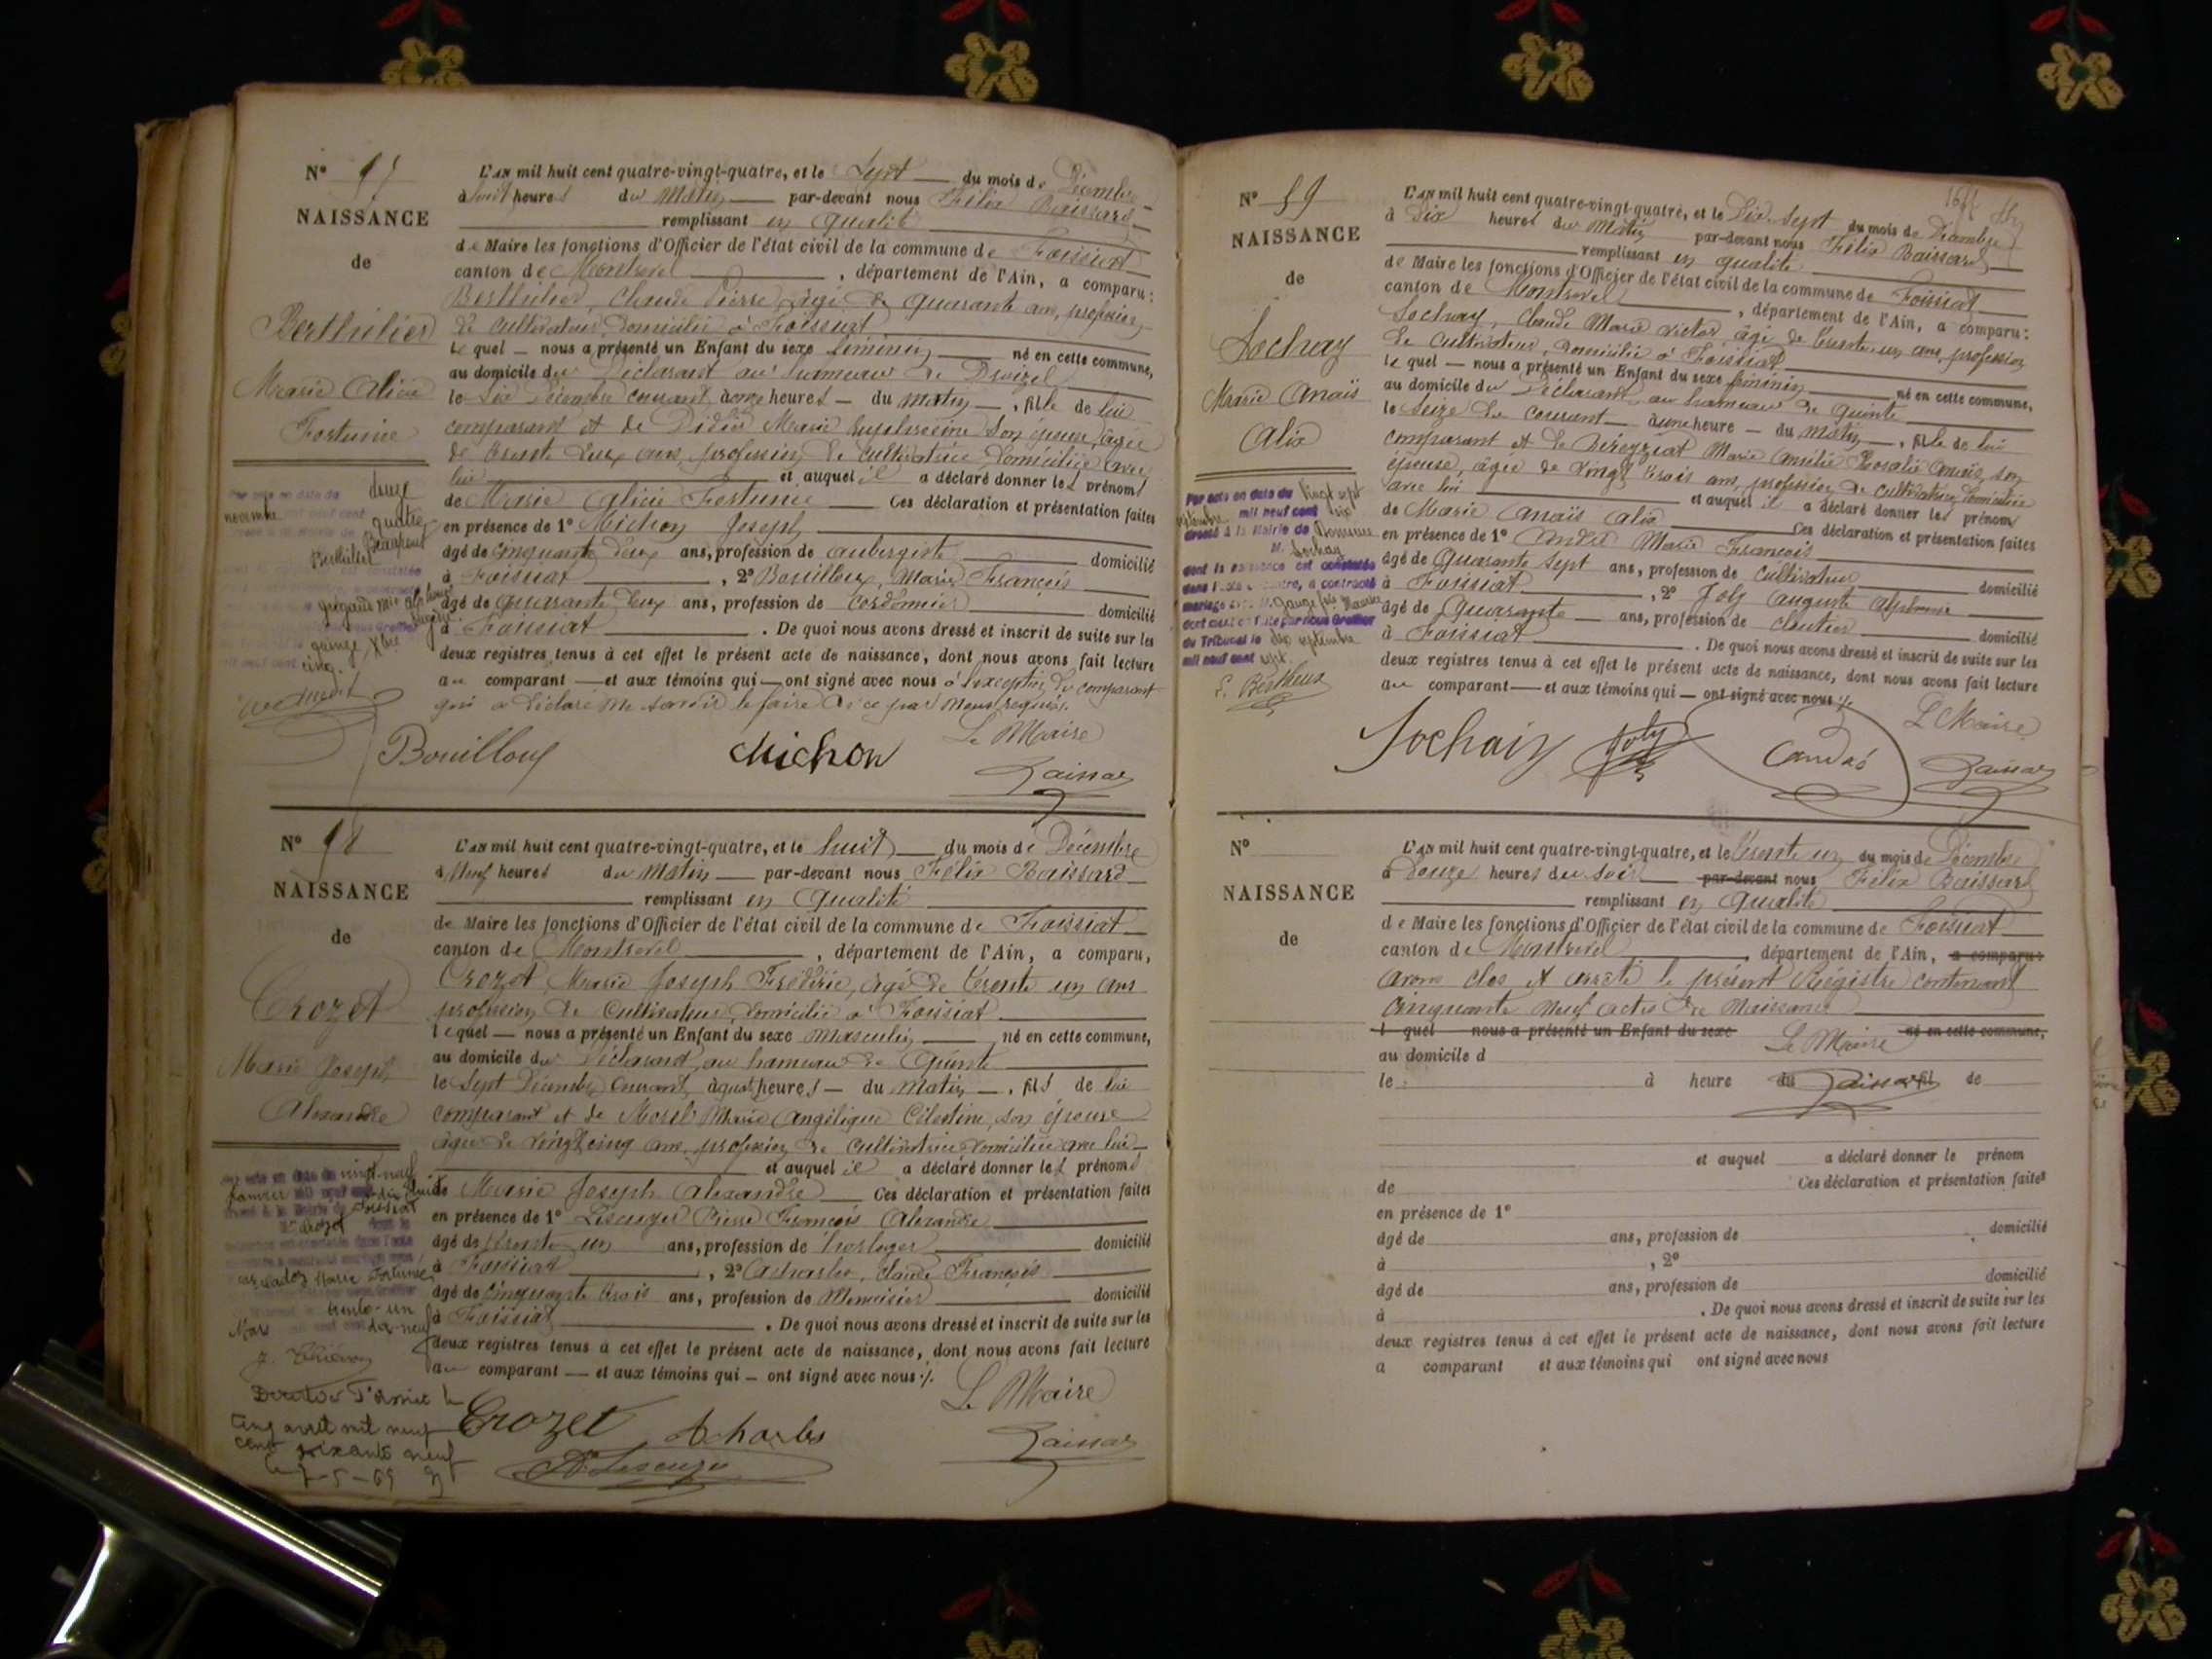 N° 57
NAISSANCE
de
Berthilier
Marie Alicie
Fortunie
L'AN mil huit cent quatre-vingt-quatre, et le Sept du mois de Décembre
à huit heures du Matin par-devant nous Félix Baissard
remplissant en qualité
de Maire les fonctions d'Officier de l'état civil de la commune de Foissiat
canton de Montrevel, département de l'Ain, a comparu:
Berthilier, Claude Pierre âgé de quarante ans, profession
de cultivateur domicilié à Foissiat
lequel nous a présenté un Enfant du sexe féminin né en cette commune,
au domicile du Déclarant au hameau de
le Six Décembre courant, à onze heures du matin, fille de lui
comparant et de Didier Marie Euphrosine son épouse, âgée
de trente deux ans, profession de cultivatrice, domiciliée avec
lui et auquel il a déclaré donner les prénoms
de Marie Alicie Fortunie Ces déclaration et présentation faites
en présence de 1° Michon Joseph
âgé de cinquante deux ans, profession de aubergiste domicilié
à Foissiat, 2° Bouilloux, Marie François
âgé de quarante deux ans, profession de cordonnier domicilié
à Foissiat. De quoi nous avons dressé et inscrit de suite sur les
deux registres tenus à cet effet le présent acte de naissance, dont nous avons fait lecture
au comparant et aux témoins qui ont signé avec nous à l'exception du comparant
qui a déclaré ne savoir le faire de ce par nous requis.
Le Maire
Bouilloux Michon Baissard
douze
novembre
quatre
Beaupont
Berthilier
quinze Xbre
cinq.
N° 58
NAISSANCE
de
Crozet
Marie Joseph
Alexandre
L'AN mil huit cent quatre-vingt-quatre, et le huit du mois de Décembre
à Neuf heures du Matin par-devant nous Félix Baissard
remplissant en Qualité
de Maire les fonctions d'Officier de l'état civil de la commune de Foissiat
canton de Montrevel, département de l'Ain, a comparu,
Crozet Marie Joseph Frédéric, âgé de trente un ans
profession de Cultivateur, domicilié à Foissiat
lequel nous a présenté un Enfant du sexe masculin né en cette commune,
au domicile du Déclarant, au hameau de Quinte
le Sept Décembre courant, à quatre heures du matin, fils de lui
comparant et de Morel Marie Angélique Célestine, son épouse
âgée de vingt cinq ans, profession de cultivatrice domiciliée avec lui
et auquel il a déclaré donner les prénoms
de Marie Joseph Alexandre Ces déclaration et présentation faites
en présence de 1° Lescuyer Pierre François Alexandre
âgé de trente un ans, profession de horloger domicilié
à Foissiat, 2° Acharles, Claude François
âgé de cinquante trois ans, profession de Menuisier domicilié
à Foissiat. De quoi nous avons dressé et inscrit de suite sur les
deux registres tenus à cet effet le présent acte de naissance, dont nous avons fait lecture
au comparant et aux témoins qui ont signé avec nous ./.
Le Maire
Crozet Acharles
A. Lescuyer Baissard
vingt-neuf
Janvier
Foissiat
Crozet
Marie Fortunée
trente-un
Mars dix-neuf
cinq avril mil neuf
cent soixante neuf
le 7-5-69
N° 59
NAISSANCE
de
Sochay
Marie Anaïs
Alix
L'AN mil huit cent quatre-vingt-quatre, et le Dix Sept du mois de Décembre
à Dix heures du Matin par-devant nous Félix Baissard
remplissant en qualité
de Maire les fonctions d'Officier de l'état civil de la commune de Foissiat
canton de Montrevel, département de l'Ain, a comparu:
Sochay, Claude Marie Victor, âgé de trente un ans, profession
de cultivateur, domicilié à Foissiat
lequel nous a présenté un Enfant du sexe féminin né en cette commune,
au domicile du Déclarant, au hameau de Quinte
le Seize du courant à une heure du Matin, fille de lui
comparant et de Direyziat Marie Amélie Rosalie Anaïs, son
épouse, âgée de vingt trois ans, profession de cultivatrice, domiciliée
avec lui et auquel il a déclaré donner les prénoms
de Marie Anaïs Alix Ces déclaration et présentation faites
en présence de 1° Andr Marie François
âgé de quarante sept ans, profession de cultivateur domicilié
à Foissiat, 2° Joly Auguste Alphonse
âgé de quarante ans, profession de cloutier domicilié
à Foissiat. De quoi nous avons dressé et inscrit de suite sur les
deux registres tenus à cet effet le présent acte de naissance, dont nous avons fait lecture
au comparant et aux témoins qui ont signé avec nous ./.
Le Maire
Sochay Joly Baissard
Par acte en date du vingt sept
septembre mil neuf cent six
dressé à la Mairie de
M. Sochay
dont la naissance est constatée
dans l'acte ci-contre, a contracté
mariage avec
dont avis par nous Greffier
du Tribunal le septembre
mil neuf cent sept.
N°
NAISSANCE
de
L'AN mil huit cent quatre-vingt-quatre, et le trente un du mois de Décembre
à Douze heures du Soir par-devant nous Félix Baissard
remplissant en Qualité
de Maire les fonctions d'Officier de l'état civil de la commune de Foissiat
canton de Montrevel, département de l'Ain, a comparu:
avons clos et arrêté le présent Régistre contenant
cinquante neuf actes de Naissance
l quel nous a présenté un Enfant du sexe né en cette commune,
Le Maire
au domicile d
le à heure du fil de
Baissard
et auquel a déclaré donner le prénom
de Ces déclaration et présentation faites
en présence de 1°
âgé de ans, profession de domicilié
à , 2°
âgé de ans, profession de domicilié
à . De quoi nous avons dressé et inscrit de suite sur les
deux registres tenus à cet effet le présent acte de naissance, dont nous avons fait lecture
a comparant et aux témoins qui ont signé avec nous